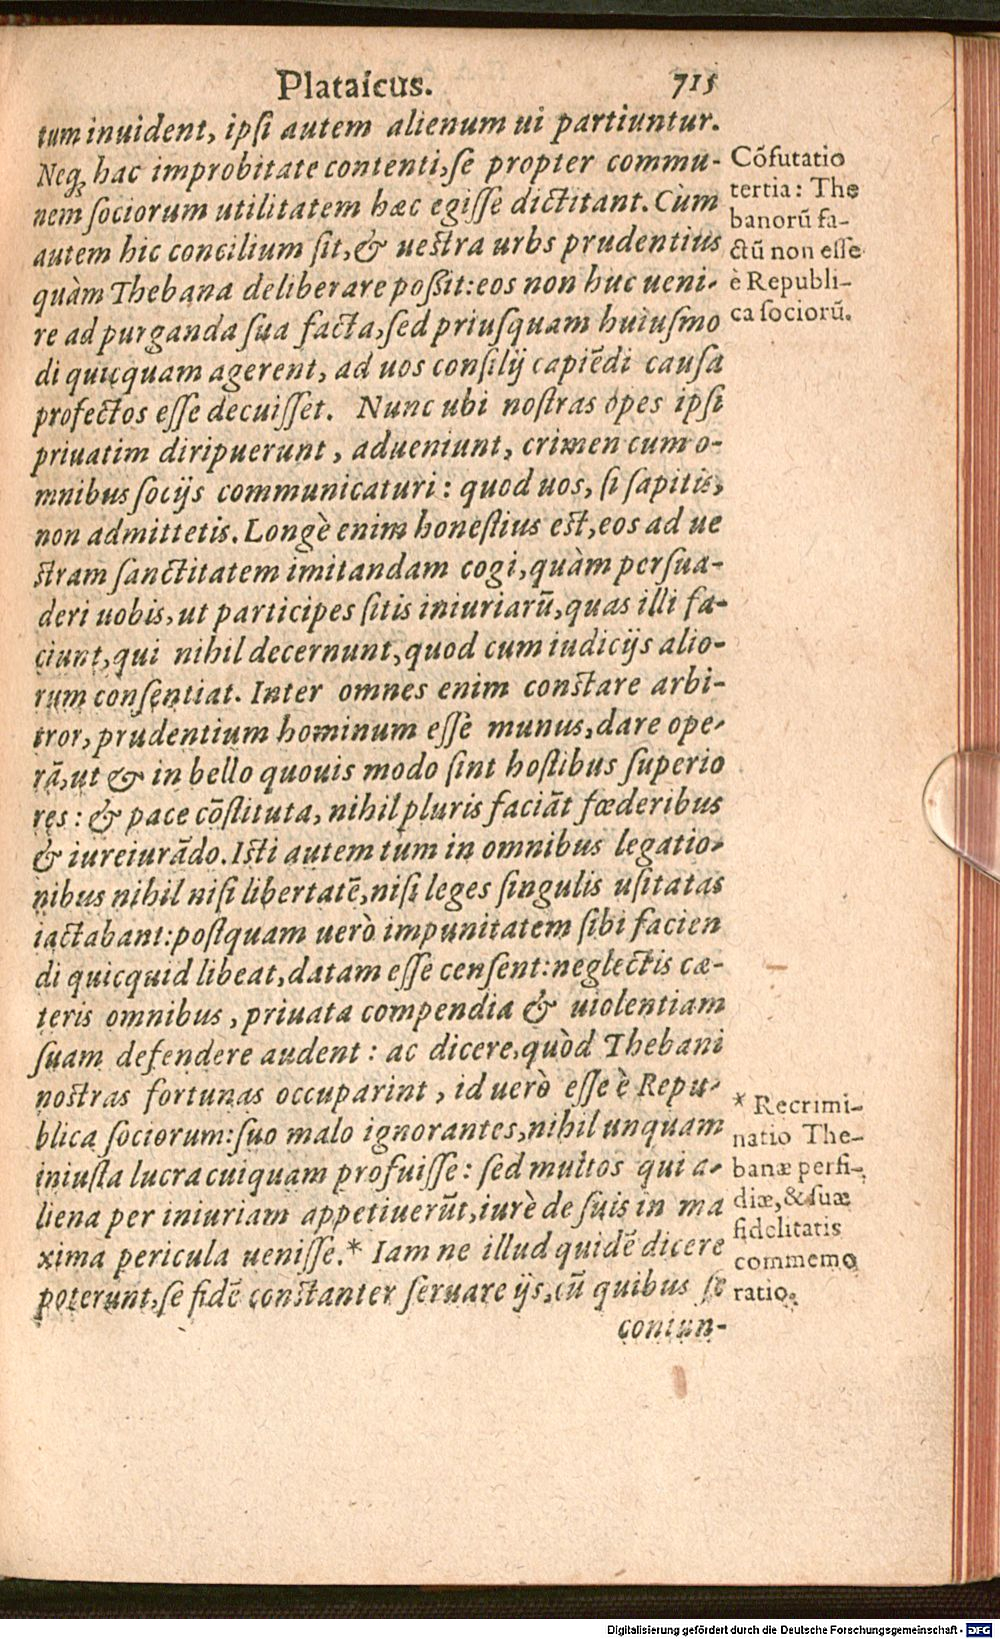 Plataicus. 715
tum inuident, ipsi autem alienum ui partiuntur.
Neq; hac improbitate contenti, se propter commu-
nem sociorum utilitatem hæc egisse dictitant. Cùm
autem hic concilium sit, & uestra urbs prudentius
quàm Thebana deliberare possit: eos non huc ueni-
re ad purganda sua facta, sed priusquam huiusmo
di quicquam agerent, ad uos consilij capiẽdi causa
profectos esse decuisset. Nunc ubi nostras opes ipsi
priuatim diripuerunt, adueniunt, crimen cum o-
mnibus socijs communicaturi: quod uos, si sapitis,
non admittetis. Longè enim honestius est, eos ad ue
stram sanctitatem imitandam cogi, quàm persua-
deri uobis, ut participes sitis iniuriarũ, quas illi fa-
ciunt, qui nihil decernunt, quod cum iudicijs alio-
rum consentiat. Inter omnes enim constare arbi-
tror, prudentium hominum esse munus, dare ope-
rã, ut & in bello quouis modo sint hostibus superio
res: & pace cõstituta, nihil pluris faciãt fœderibus
& iureiurãdo. Isti autem tum in omnibus legatio-
nibus nihil nisi libertatẽ, nisi leges singulis usitatas
iactabant: postquam uerò impunitatem sibi facien
di quicquid libeat, datam esse censent: neglectis cæ-
teris omnibus, priuata compendia & uiolentiam
suam defendere audent: ac dicere, quòd Thebani
nostras fortunas occuparint, id uerò esse è Repu-
blica sociorum: suo malo ignorantes, nihil unquam
iniusta lucra cuiquam profuisse: sed multos qui a-
liena per iniuriam appetiuerũt, iure de suis in ma
xima pericula uenisse.* Iam ne illud quidẽ dicere
poterunt, se fidẽ constanter seruare ijs, cũ quibus se
coniun-
Cõfutatio
tertia: The
banorũ fa-
ctũ non esse
è Republi-
ca sociorũ.
* Recrimi-
natio The-
banæ perfi-
diæ, & suæ
fidelitatis
commemo
ratio.
Digitalisierung gefördert durch die Deutsche Forschungsgemeinschaft - DFG